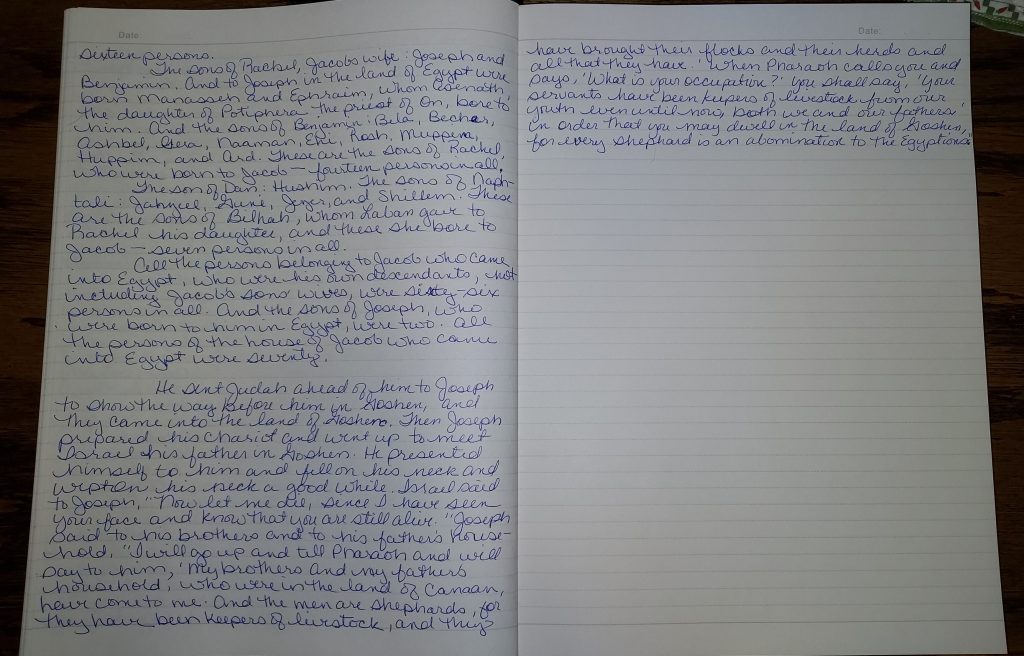 Date:
sixteen persons.
The sons of Rachel, Jacob's wife: Joseph and
Benjamin. And to Joseph in the land of Egypt were
born Manasseh and Ephraim, whom Asenath,
the daughter of Potiphera the priest of On, bore to
him. And the sons of Benjamin: Bela, Becher,
Ashbel, Gera, Naaman, Ehi, Rosh, Muppim,
Huppim, and Ard. These are the sons of Rachel,
who were born to Jacob — fourteen persons in all.
The son of Dan: Hushim. The sons of Naph-
tali: Jahzeel, Guni, Jezer, and Shillem. These
are the sons of Bilhah, whom Laban gave to
Rachel his daughter, and these she bore to
Jacob — seven persons in all.
All the persons belonging to Jacob who came
into Egypt, who were his own descendants, not
including Jacob's sons' wives, were sixty-six
persons in all. And the sons of Joseph, who
were born to him in Egypt, were two. All
the persons of the house of Jacob who came
into Egypt were seventy.
He sent Judah ahead of him to Joseph
to show the way before him in Goshen, and
they came into the land of Goshen. Then Joseph
prepared his chariot and went up to meet
Israel his father in Goshen. He presented
himself to him and fell on his neck and
wept on his neck a good while. Israel said
to Joseph, "Now let me die, since I have seen
your face and know that you are still alive." Joseph
said to his brothers and to his father's house-
hold, "I will go up and tell Pharaoh and will
say to him, 'My brothers and my father's
household, who were in the land of Canaan,
have come to me. And the men are shephards, for
they have been keepers of livestock, and they
Date:
have brought their flocks and their herds and
all that they have.' When Pharaoh calls you and
says, 'What is your occupation?' you shall say, 'Your
servants have been keepers of livestock from our
youth even until now, both we and our fathers,'
in order that you may dwell in the land of Goshen,
for every shephard is an abomination to the Egyptians."